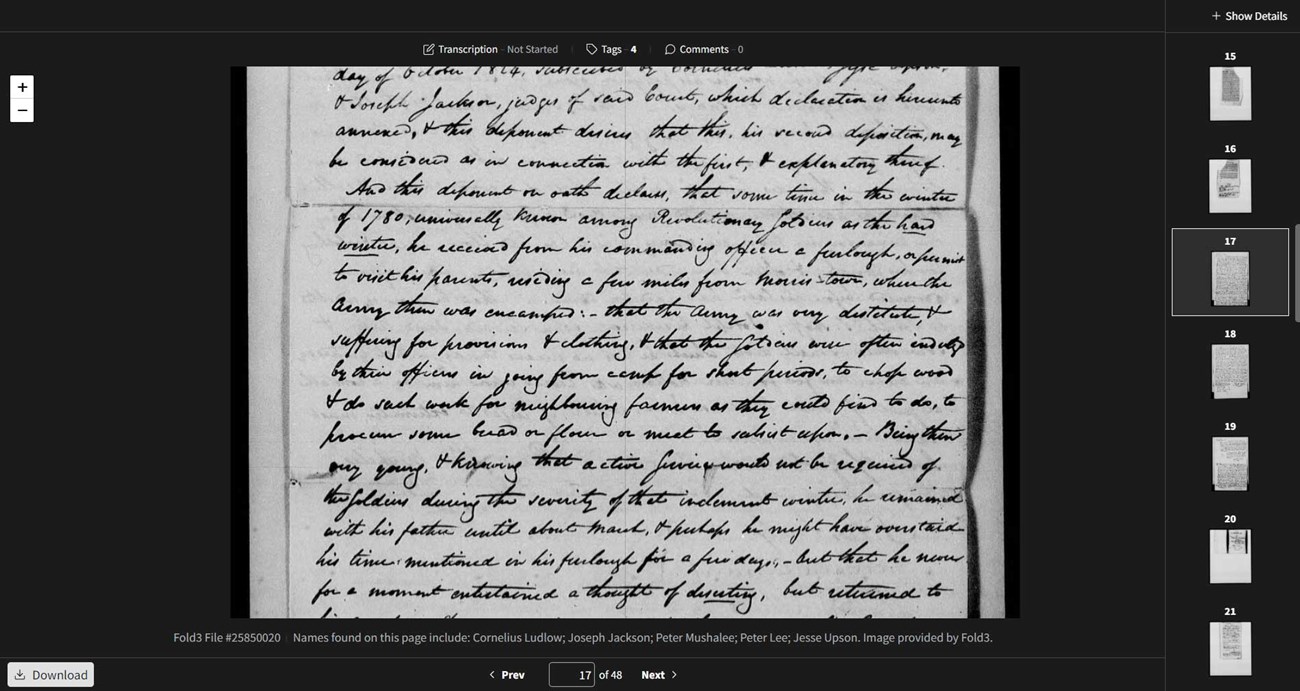 + Show Details
Transcription - Not Started
Tags - 4
Comments - 0
+
−
day of October 1824, subscribed by Cornelius Jesse Upson,
& Joseph Jackson, judges of said Court, which declaration is hereunto
annexed, & this deponent desires that this, his second deposition, may
be considered as in connection with the first, & explanatory thereof.
And this deponent on oath declares, that some time in the winter
of 1780, universally known among Revolutionary Soldiers as the hard
winter, he received from his commanding officer a furlough, or permit
to visit his parents, residing a few miles from Morris-town, where the
Army then was encamped:- that the Army was very destitute, &
suffering for provisions & clothing, & that the Soldiers were often indulged
by their officers in going from camp for short periods, to chop wood
& do such work for neighbouring farmers as they could find to do, to
procure some bread or flour or meat to subsist upon,- Being then
very young, & knowing that active service would not be required of
the Soldiers during the severity of that inclement winter, he remained
with his father until about March, & perhaps he might have overstaid
his time mentioned in his furlough for a few days,- but that he never
for a moment entertained a thought of deserting, but returned to
Fold3 File #25850020 Names found on this page include: Cornelius Ludlow; Joseph Jackson; Peter Mushalee; Peter Lee; Jesse Upson. Image provided by Fold3.
Download
Prev
17 of 48
Next
15
16
17
18
19
20
21